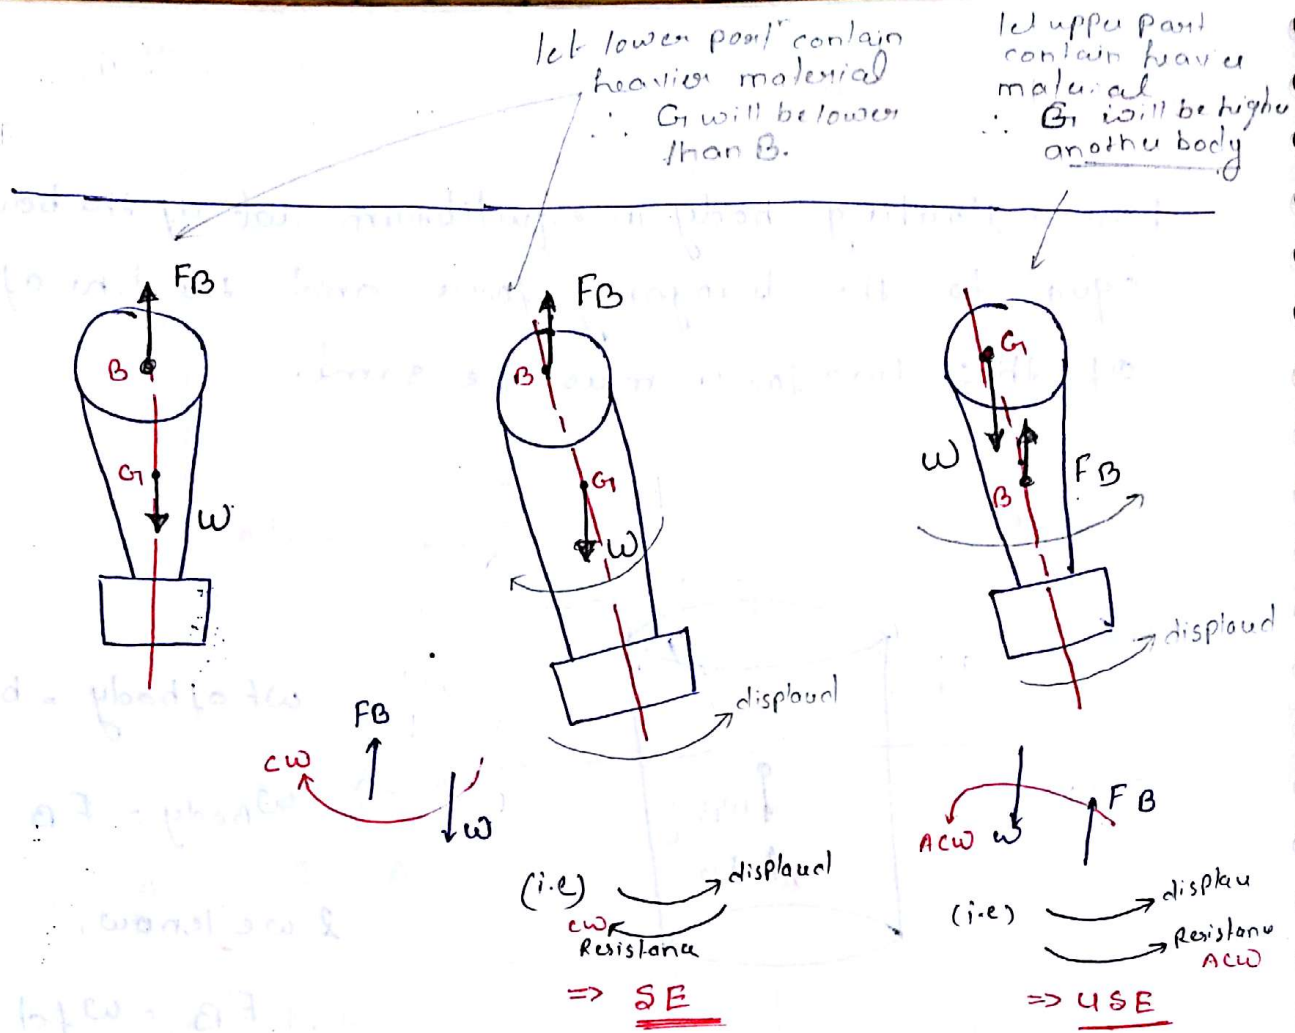 let lower part contain
heavier material
∴ G will be lower
than B.
let upper part
contain heavier
material
∴ G will be higher
another body
FB
B
G
W
FB
B
G
W
displaced
G
W
B
FB
displaced
FB
CW
W
(i.e) displaced
CW
Resistance
=> SE
ACW W FB
(i.e) displace
Resistance
ACW
=> USE